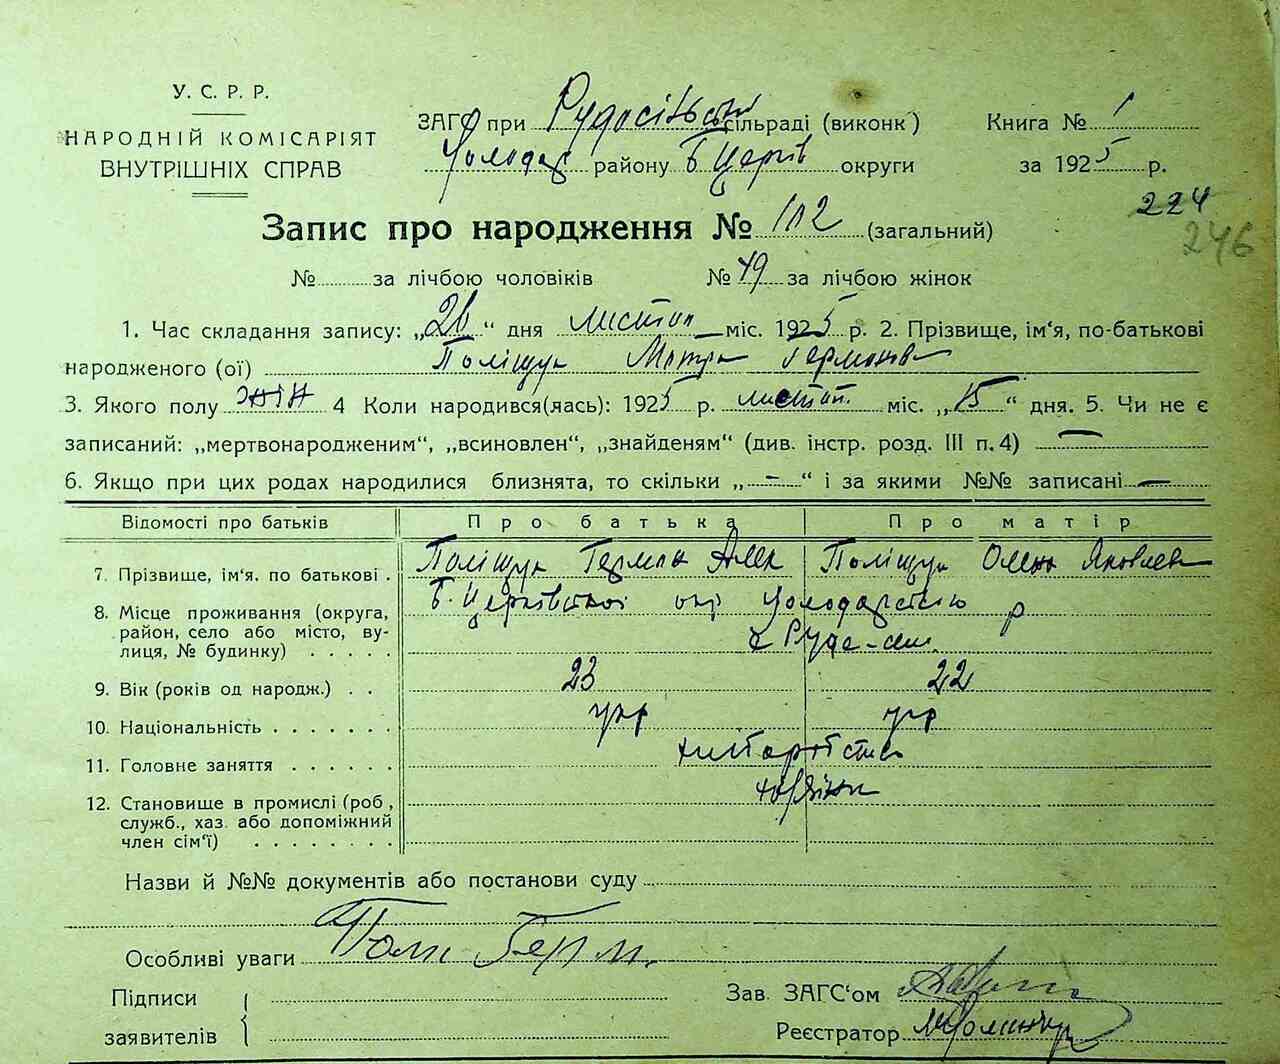 У. С. Р. Р.
НАРОДНІЙ КОМІСАРІЯТ
ВНУТРІШНІХ СПРАВ
ЗАГС при Рудосільськ сільраді (виконк) Книга № 1
Володар району Б Церків округи за 1925 р.
224
246
Запис про народження № 112 (загальний)
№ за лічбою чоловіків № 49 за лічбою жінок
1. Час складання запису: „26“ дня листоп міс. 1925 р. 2. Прізвище, ім‘я, по-батькові
народженого (ої) Поліщук Мотря Германівн
3. Якого полу жін 4 Коли народився(лась): 1925 р. листоп. міс. „15“ дня. 5. Чи не є
записаний: „мертвонародженим“, „всиновлен“, „знайденям“ (див. інстр. розд. III п. 4) —
6. Якщо при цих родах народилися близнята, то скільки „-“ і за якими №№ записані —
Відомості про батьків Про батька Про матір
7. Прізвище, ім‘я. по батькові . Поліщук Герман Алек Поліщук Олена Яковлев
8. Місце проживання (округа, Б. Церківської окр Володарського р
район, село або місто, ву-
лиця, № будинку) . . . . . с Руде-село
9. Вік (років од народж.) . . 23 22
10. Національність . . . . . . . укр укр
11. Головне заняття . . . . . . хліборобство
12. Становище в промислі (роб,
служб., хаз. або допоміжний
член сім‘ї) . . . . . . . .
Назви й №№ документів або постанови суду
Особливі уваги Полі Герм.
Підписи
заявителів
Зав. ЗАГС‘ом
Реєстратор